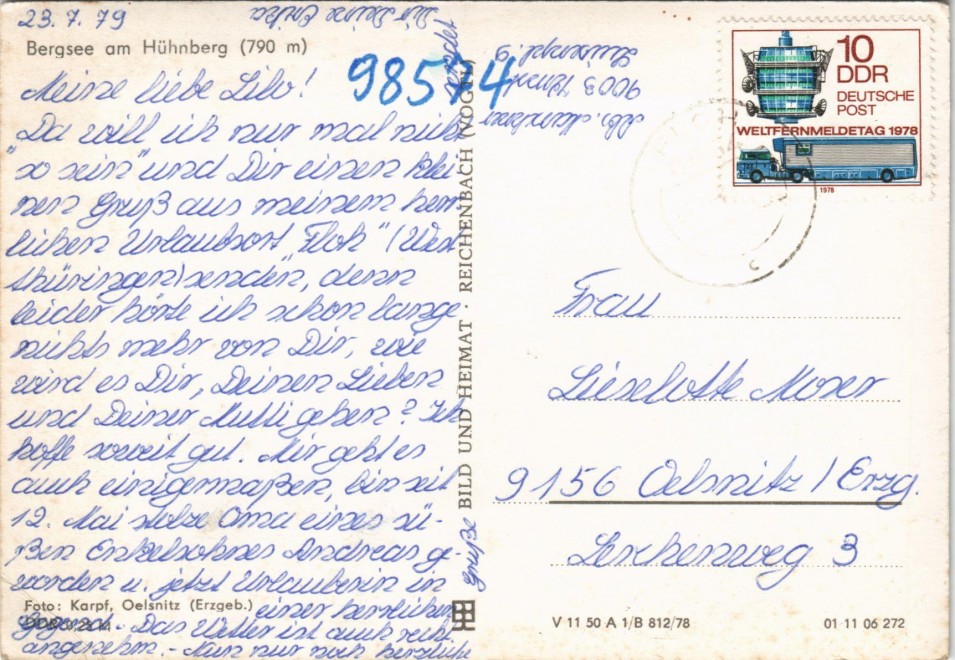 23. 7. 79
Bergsee am Hühnberg (790 m)
Meine liebe Lilo!
Da will ich nur mal nicht
"so sein" und Dir einen klei
nen Gruß aus meinem herr
lichen Urlaubsort "Floh" (West
thüringen) senden, denn
leider hörte ich schon lange
nichts mehr von Dir, wie
wird es Dir, Deinen Lieben
und Deiner Mutti gehen? Ich
hoffe soweit gut. Mir geht es
auch einigermaßen, bin seit
12. Mai stolze Oma eines sü-
ßen Enkelsohnes Andreas ge-
worden u. jetzt Urlauberin in
einer herrlichen
Gegend. - Das Wetter ist auch recht
angenehm. - Nun nur noch herzliche
Grüße
Dir Deine
Foto: Karpf, Oelsnitz (Erzgeb.)
98574
Abs.
9003
BILD UND HEIMAT · REICHENBACH (VOGTL)
10
DDR
DEUTSCHE
POST
WELTFERNMELDETAG 1978
1978
c
Frau
Lieselotte Moser
9156 Oelsnitz / Erzg.
Lerchenweg 3
V 11 50 A 1/B 812/78
01 11 06 272